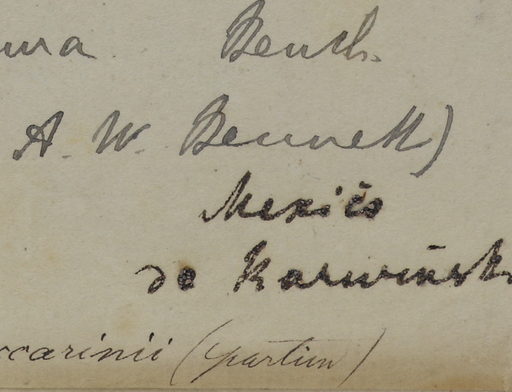 ura Benth.
A. W. Bennett)
Mexico
de Karwinsk
ccarinii (partim)